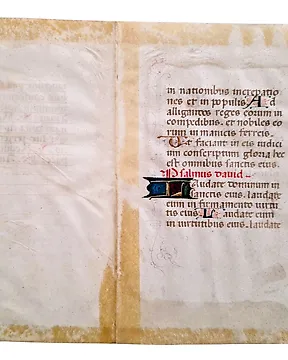 in nationibus increpatio
nes et in populis. Ad
alligandos reges eorum in
compedibus. et nobiles eo
rum in manicis ferreis.
Ut faciant in eis iudici
um conscriptum gloria hec
est omnibus sanctis eius.
Psalmus david.
Laudate dominum in
sanctis eius. laudate
eum in firmamento virtu
tis eius. Laudate eum
in virtutibus eius. laudate